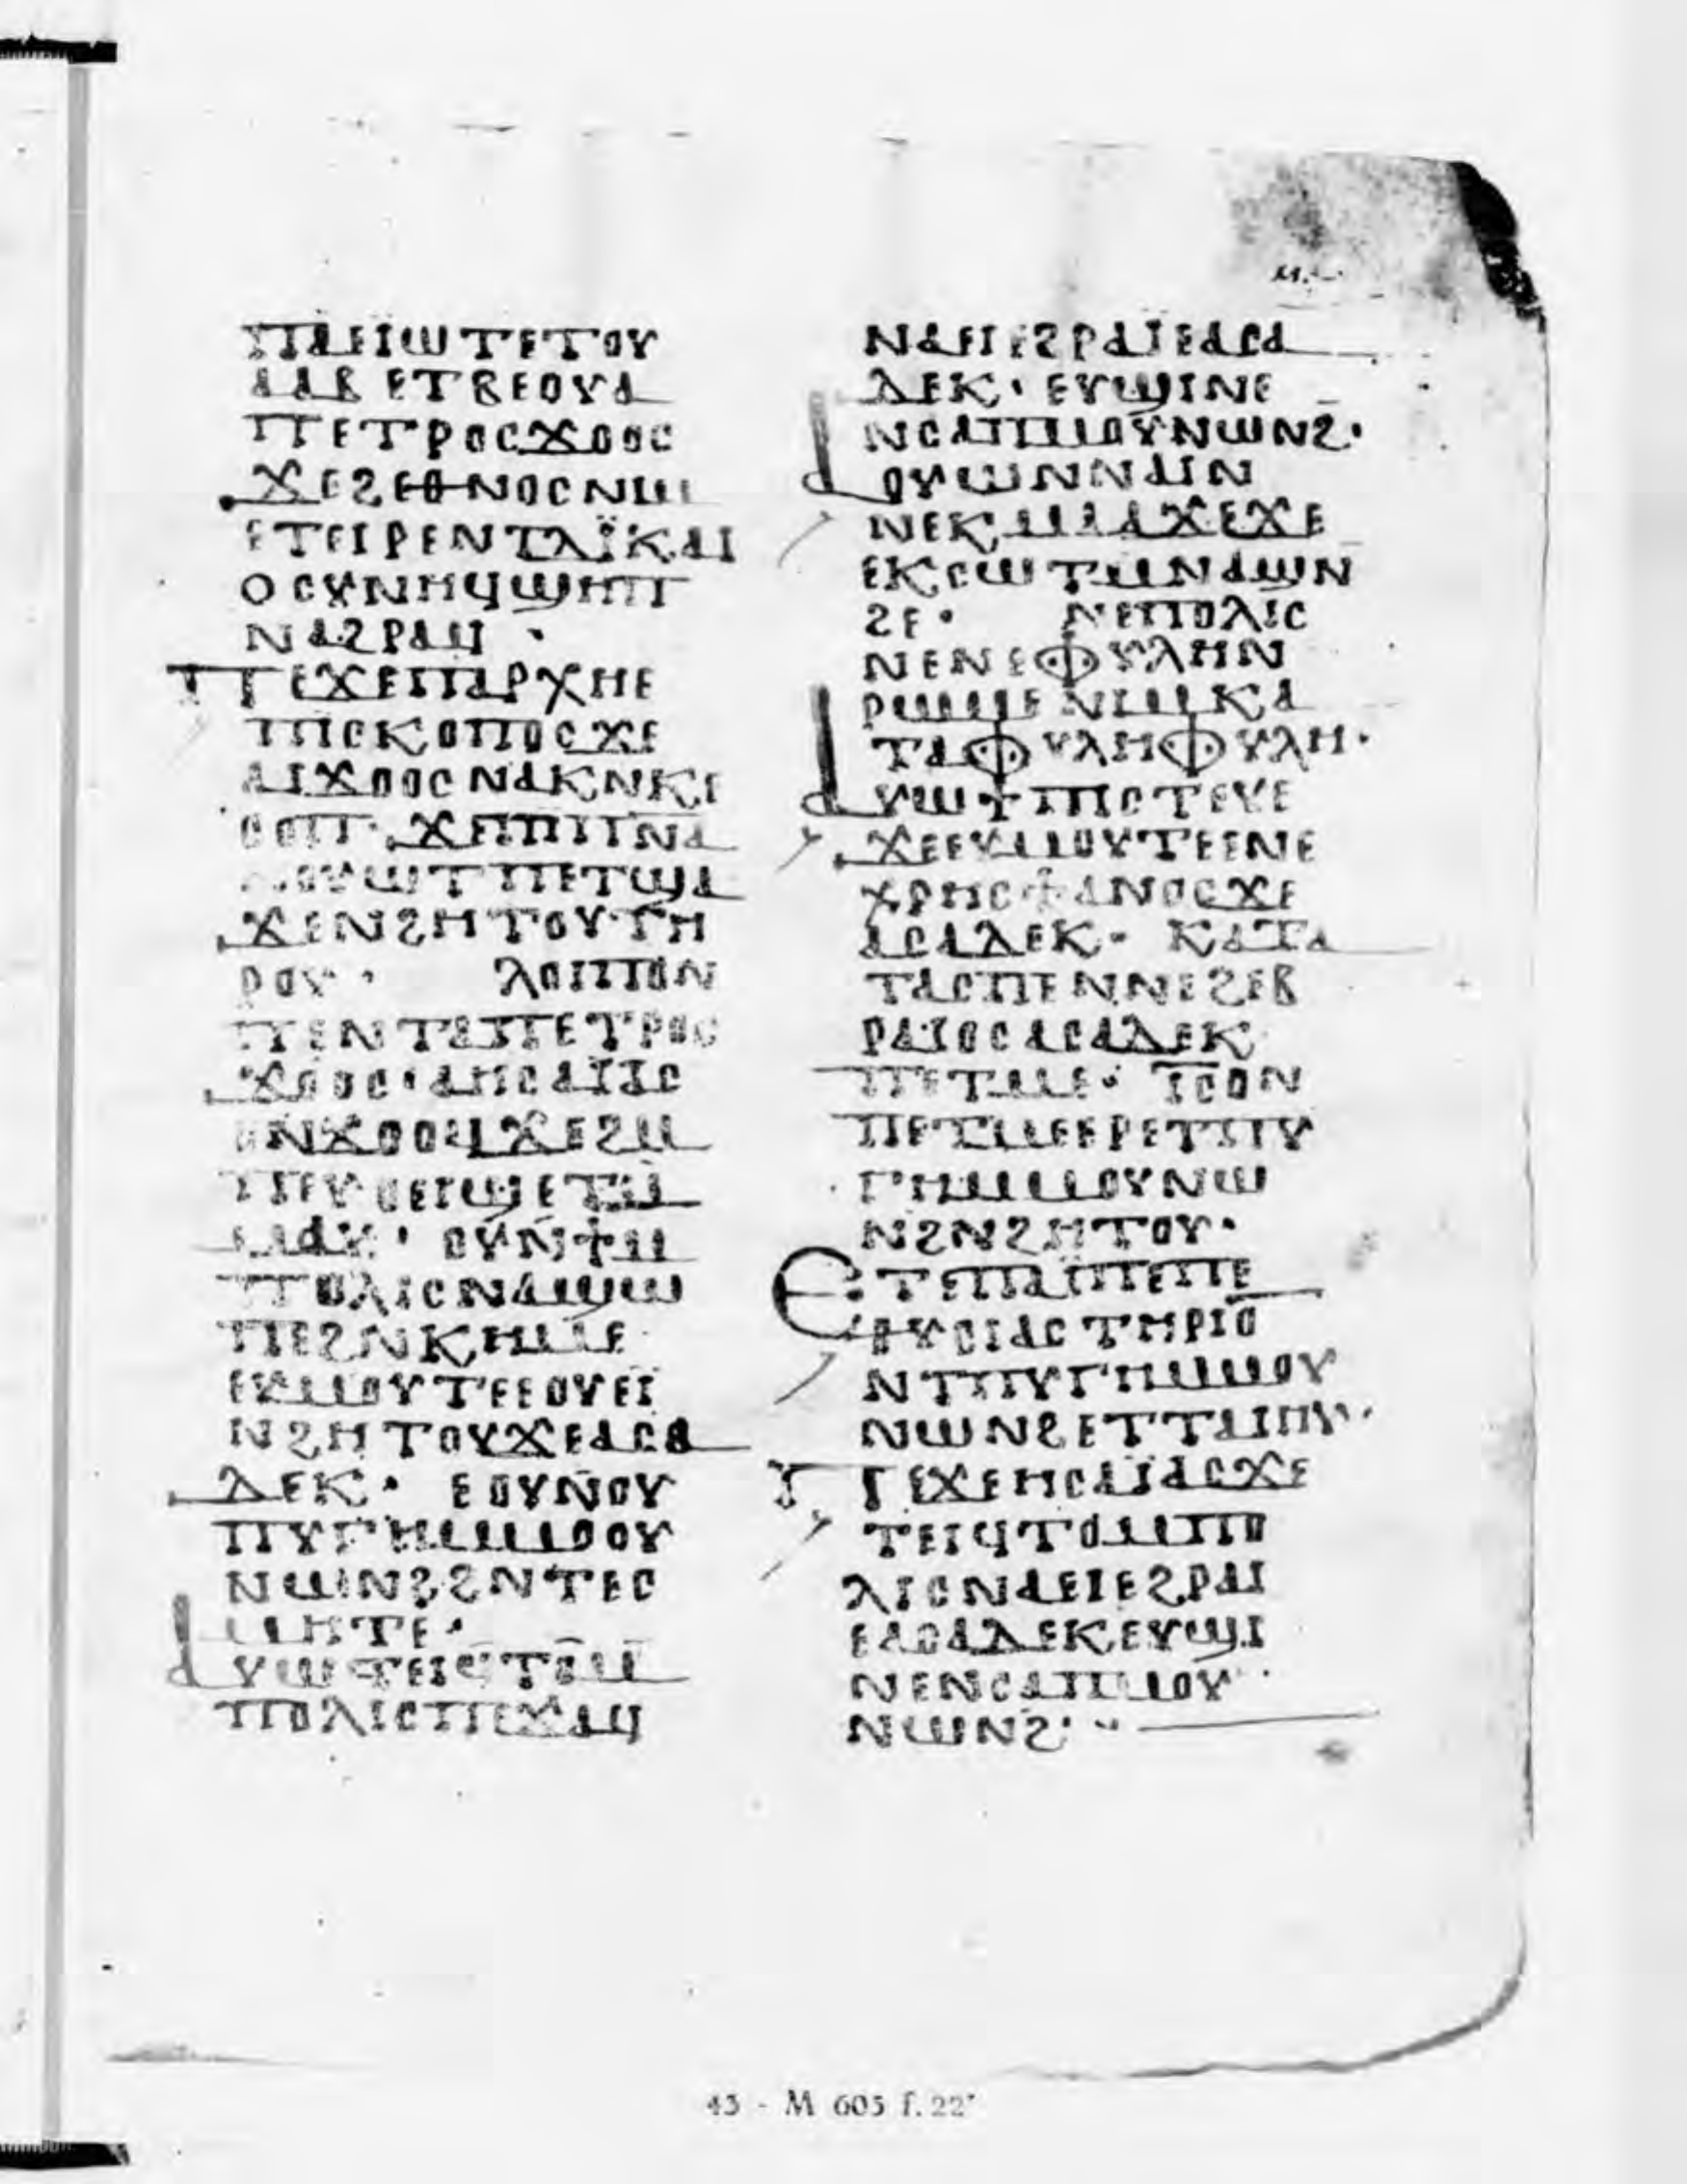 ⲠⲀⲈⲒⲰⲦⲈⲦⲞⲨ
ⲀⲀⲂ ⲈⲦⲂⲈⲞⲨⲀ
ⲠⲈⲦⲢⲞⲤϪⲞⲞⲤ
ϪⲈϨⲈⲐⲚⲞⲤⲚⲒⲘ
ⲈⲦⲈⲒⲢⲈⲚⲦⲆⲒ̈ⲔⲀⲒ
ⲞⲤⲨⲚⲎϤϢⲎⲠ
ⲚⲀϨⲢⲀϤ ·
ⲠⲈϪⲈⲠⲀⲢⲬⲎⲈ
ⲠⲒⲤⲔⲞⲠⲞⲤϪⲈ
ⲀⲒϪⲞⲞⲤⲚⲀⲔⲚⲔⲈ
ⲤⲞⲠ· ϪⲈⲠⲈⲠⲚⲀ
ⲚⲞⲨⲰⲦ ⲠⲈⲦϢⲀ
ϪⲈⲚϨⲎⲦⲞⲨⲦⲎ
ⲢⲞⲨ· ⲖⲞⲒⲠⲞⲚ
ⲠⲈⲚⲦⲀⲠⲈⲦⲢⲞⲤ
ϪⲞⲞⲤ·ⲀⲎⲤⲀⲒ̈ⲀⲤ
ⲞⲚϪⲞⲞϤϪⲈϨⲘ
ⲠⲈⲨⲞⲈⲒϢⲈⲦⲘ
ⲘⲀⲨ· ⲞⲨⲚϮⲈ
ⲘⲠⲞⲖⲒⲤⲚⲀϢⲰ
ⲠⲈϨⲚⲔⲎⲘⲈ
ⲈⲨⲘⲞⲨⲦⲈⲈⲞⲨⲈⲒ̈
ⲚϨⲎⲦⲞⲨϪⲈⲀⲤⲀ
ⲆⲈⲔ· ⲈⲞⲨⲚⲞⲨ
ⲠⲨⲄⲎⲘⲘⲞⲞⲨ
ⲚⲰⲚϨϨⲚⲦⲈⲤ
ⲘⲎⲦⲈ·
ⲀⲨⲰⲦⲈⲒϤⲦⲞⲘ
ⲠⲞⲖⲒⲤⲠⲈϪⲀϤ
ⲚⲀⲈⲒⲈϨⲢⲀⲒ̈ⲈⲀⲤⲀ
ⲆⲈⲔ· ⲈⲨϢⲒⲚⲈ
ⲚⲤⲀⲠⲘⲞⲨⲚⲰⲚϨ·
ⲀⲞⲨⲰⲚⲚⲀⲒⲚ
ⲚⲈⲔⲘⲀⲀϪⲈϪⲈ
ⲈⲔⲤⲰⲦⲘⲚⲀϢⲚ
ϨⲈ· ⲚⲈⲠⲞⲖⲒⲤ
ⲚⲈⲚⲈⲪⲨⲖⲎⲚ
ⲢⲰⲘⲈ ⲚⲒⲘ ⲔⲀ
ⲦⲀⲪⲨⲖⲎⲪⲨⲖⲎ·
ⲀⲨⲰϮⲠⲒⲤⲦⲈⲨⲈ
ϪⲈⲈⲨⲘⲞⲨⲦⲈⲈⲚⲈ
ⲬⲢⲎⲤϮⲀⲚⲞⲤϪⲈ
ⲀⲤⲀⲆⲈⲔ· ⲔⲀⲦⲀ
ⲦⲀⲤⲠⲈⲚⲚⲈϨⲈⲂ
ⲢⲀⲒⲞⲤⲀⲤⲀⲆⲈⲔ
ⲠⲈⲦⲘⲈ· ⲒⲤⲞⲚ
ⲠⲈⲦⲘⲈⲈⲢⲈⲦⲠⲨ
ⲄⲎⲘⲘⲞⲨⲚⲰ
ⲚϨⲚϨⲎⲦⲞⲨ·
ⲈⲦⲈⲠⲀⲒ̈ⲠⲈⲠⲈ
ⲐⲨⲤⲒⲀⲤⲦⲎⲢⲒⲞ
ⲚⲦⲠⲨⲄⲎⲘⲘⲞⲨ
ⲚⲰⲚϨⲈⲦⲦⲀⲒⲎⲨ·
ⲠⲈϪⲈⲎⲤⲀⲒ̈ⲀⲤϪⲈ
ⲦⲈⲒϤⲦⲞⲘⲠⲞ
ⲖⲒⲤⲚⲀⲈⲒⲈϨⲢⲀⲒ
ⲈⲀⲤⲀⲆⲈⲔⲈⲨϢⲒ
ⲚⲈⲚⲤⲀⲠⲘⲞⲨ
ⲚⲰⲚϨ·
43 - M 605 f. 22ʳ